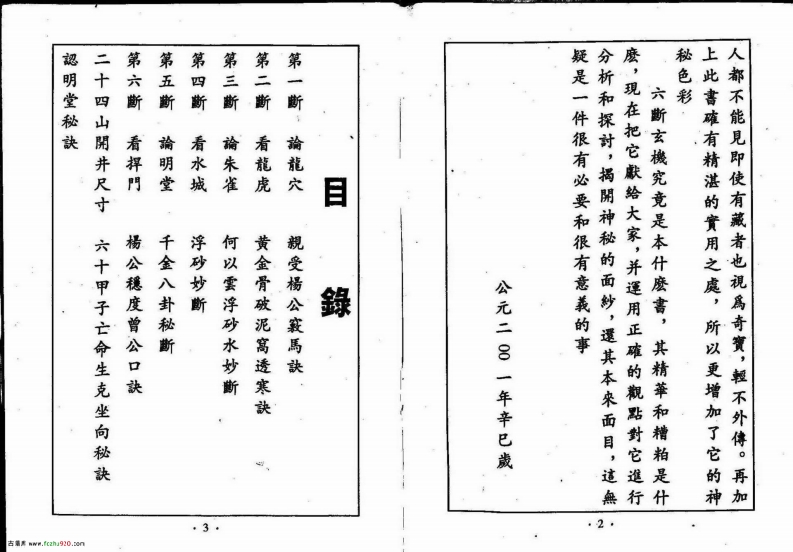 人都不能見即使有藏者也視爲奇寶，輕不外傳。再加
上此書確有精湛的實用之處，所以更增加了它的神
秘色彩
六斷玄機究竟是本什麽書，其精華和糟粕是什
麽，現在把它獻給大家，并運用正確的觀點對它進行
分析和探討，揭開神秘的面紗，還其本來面目，這無
疑是一件很有必要和很有意義的事
公元二00一年辛巳歲
·2·
目錄
第一斷 論龍穴 親受楊公竅馬訣
第二斷 看龍虎 黃金骨破泥窩透寒訣
第三斷 論朱雀 何以雲浮砂水妙斷
第四斷 看水城 浮砂妙斷
第五斷 論明堂 千金八卦秘斷
第六斷 看捍門 楊公穩度曾公口訣
二十四山開井尺寸 六十甲子亡命生克坐向秘訣
認明堂秘訣
·3·
古籍库 www.fczhu920.com